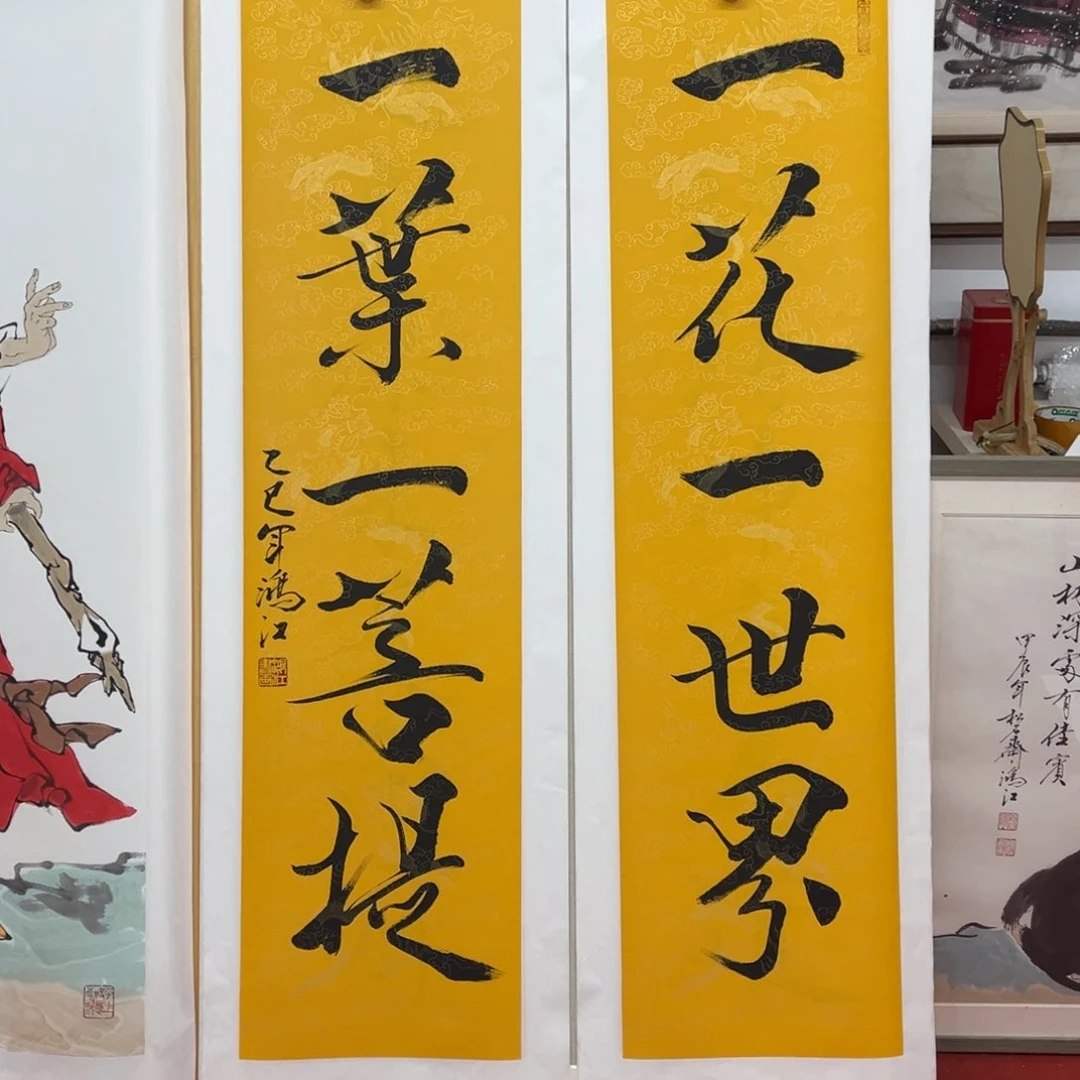 一花一世界
一葉一菩提
乙巳年鴻江
山林深處有佳賓
甲辰年松石齋鴻江